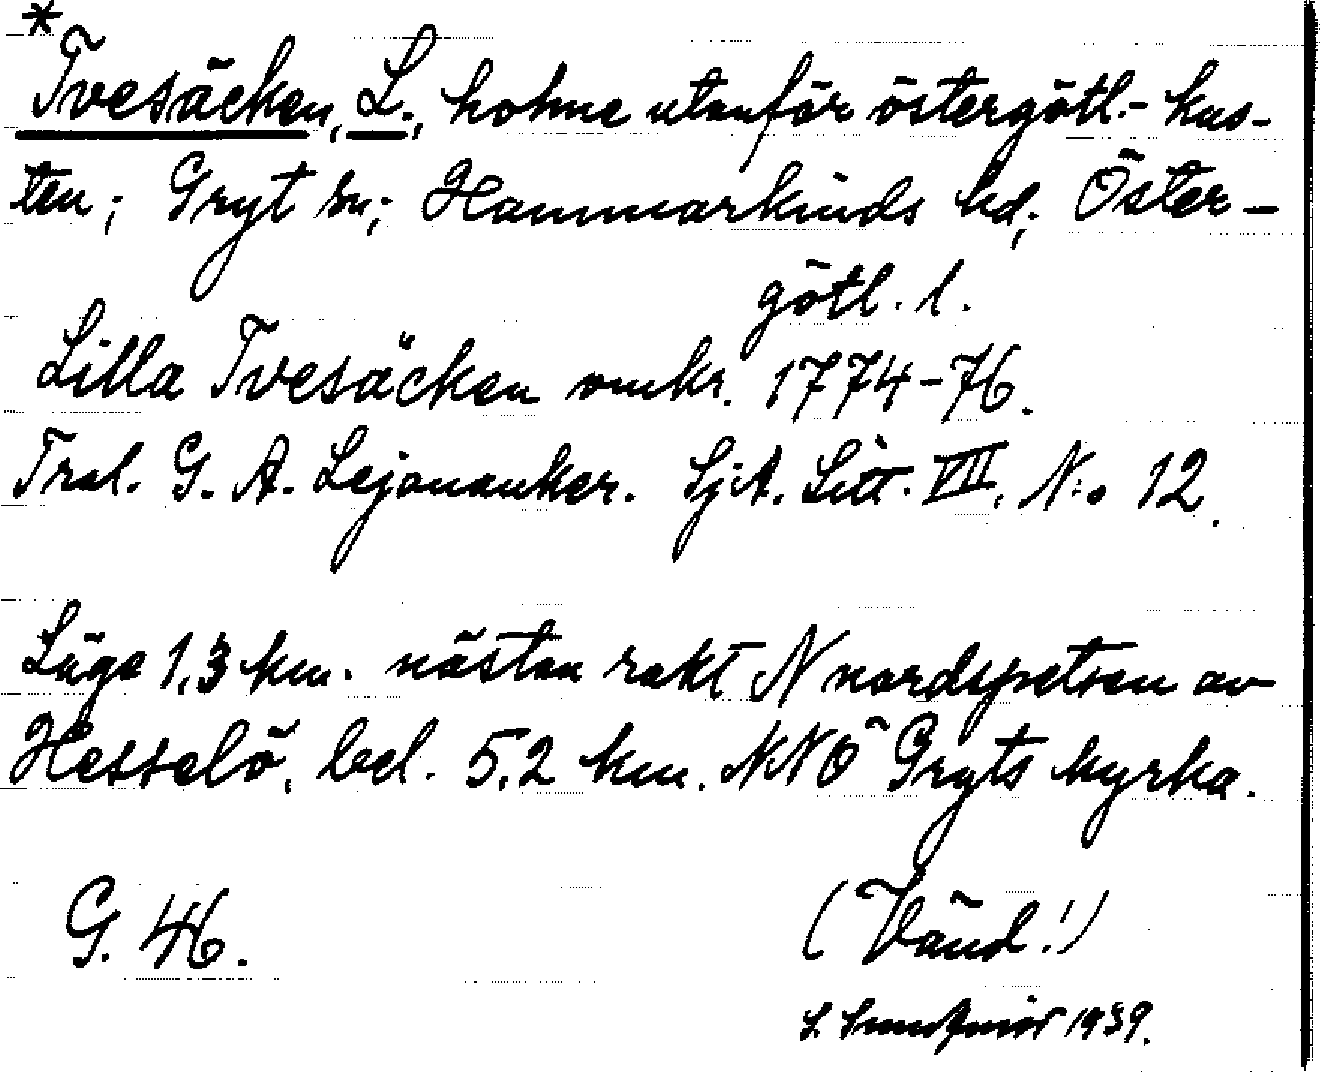 *
Tvesäcken, L., holme utanför östergötl.- kus-
ten; Gryt sn; Hammarkinds hd; Öster-
götl. l.
Lilla Tvesäcken omkr. 1774-76.
Trol. G. A. Lejonanker. SjA. Litt. VII, N:o 12.
Läge 1,3 km. nästan rakt N nordspetsen av
Hesselö, bel. 5,2 km. NNÖ Gryts kyrka.
G. 46.
(Vänd!)
S. 1939.